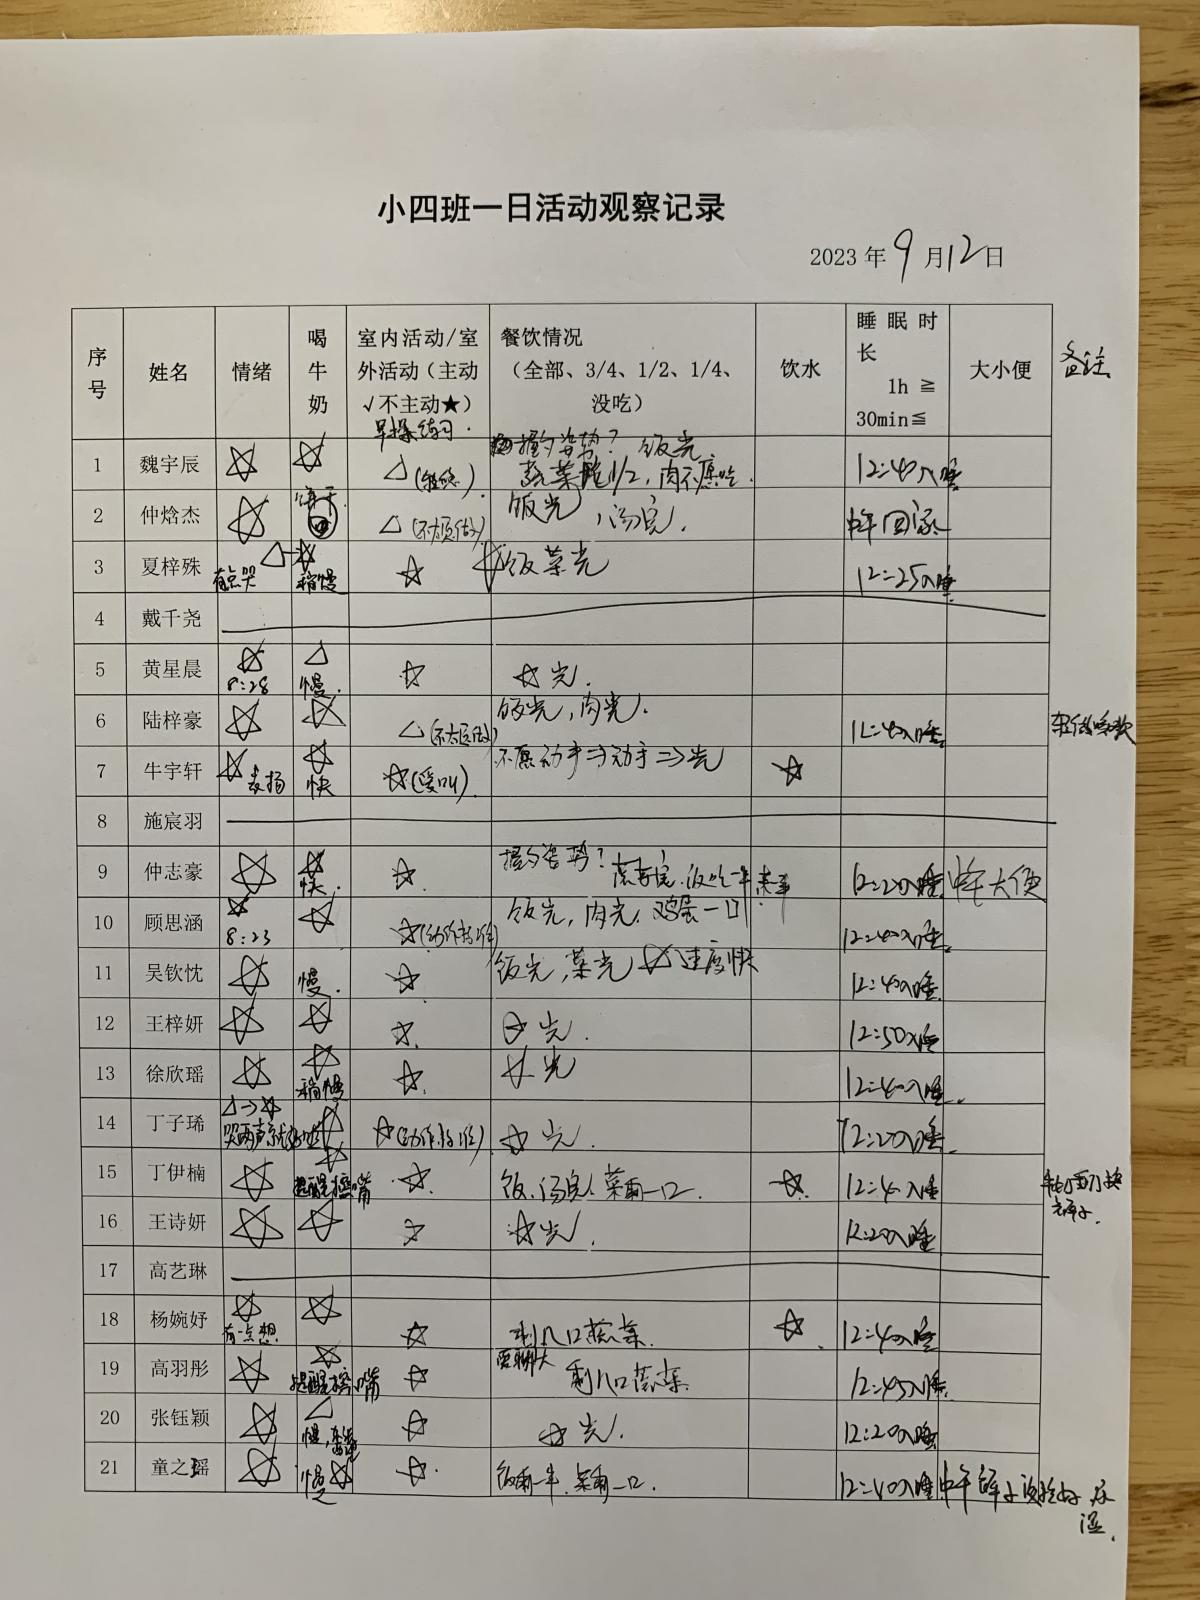 小四班一日活动观察记录
2023 年 9 月 12 日
序号 姓名 情绪 喝牛奶 室内活动/室外活动（主动√不主动★） 早操练习. 餐饮情况（全部、3/4、1/2、1/4、没吃） 饮水 睡眠时长 1h ≧ 30min≦ 大小便 备注
1 魏宇辰 ☆ ☆ △ 握勺姿势？ 饭光 蔬菜 1/2，肉不愿吃. 12:40入睡
2 仲焓杰 ☆ 饼干 △(不太愿做) 饭光，汤完. 中午回家
3 夏梓殊 有点哭 △→☆ 稍慢 ☆ ☆饭菜光 12:25入睡
4 戴千尧
5 黄星晨 ☆ 8:28 △ 慢. ☆ ☆光.
6 陆梓豪 ☆ ☆ △(不太愿做) 饭光，肉光. 12:40入睡 咳嗽
7 牛宇轩 ☆ 表扬 ☆ 快 ☆(爱叫) 不愿动手→动手→光 ☆
8 施宸羽
9 仲志豪 ☆ ☆ 快. ☆ 握勺姿势？ 饭吃一半 12:20入睡 中午大便
10 顾思涵 ☆ 8:23 ☆ ☆(动作标准) 饭光，肉光，鸡蛋一口 12:40入睡
11 吴钦忱 ☆ 慢. ☆ 饭光，菜光 ☆速度快 12:40入睡
12 王梓妍 ☆ ☆ ☆ ☆光. 12:50入睡
13 徐欣瑶 ☆ ☆ 稍慢 ☆ ☆光 12:40入睡
14 丁子琋 △→☆ 哭两声就 ☆ ☆(动作标准) ☆光. 12:20入睡
15 丁伊楠 ☆ ☆ 提醒擦嘴 ☆ 饭、汤完. 菜剩一口. ☆ 12:40入睡
16 王诗妍 ☆ ☆ ☆ ☆光. 12:20入睡
17 高艺琳
18 杨婉妤 ☆ 有一点想. ☆ ☆ 剩几口蔬菜. ☆ 12:40入睡
19 高羽彤 ☆ ☆ 提醒擦嘴 ☆ 剩几口蔬菜. 12:45入睡
20 张钰颖 ☆ △ 慢, ☆ ☆光. 12:20入睡
21 童之瑶 ☆ 慢☆ ☆ 饭剩一半，菜剩一口. 12:40入睡 中午裤子没拉好 尿湿.